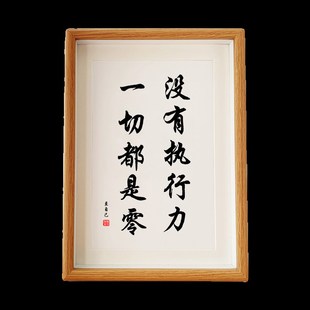 没有执行力
一切都是零